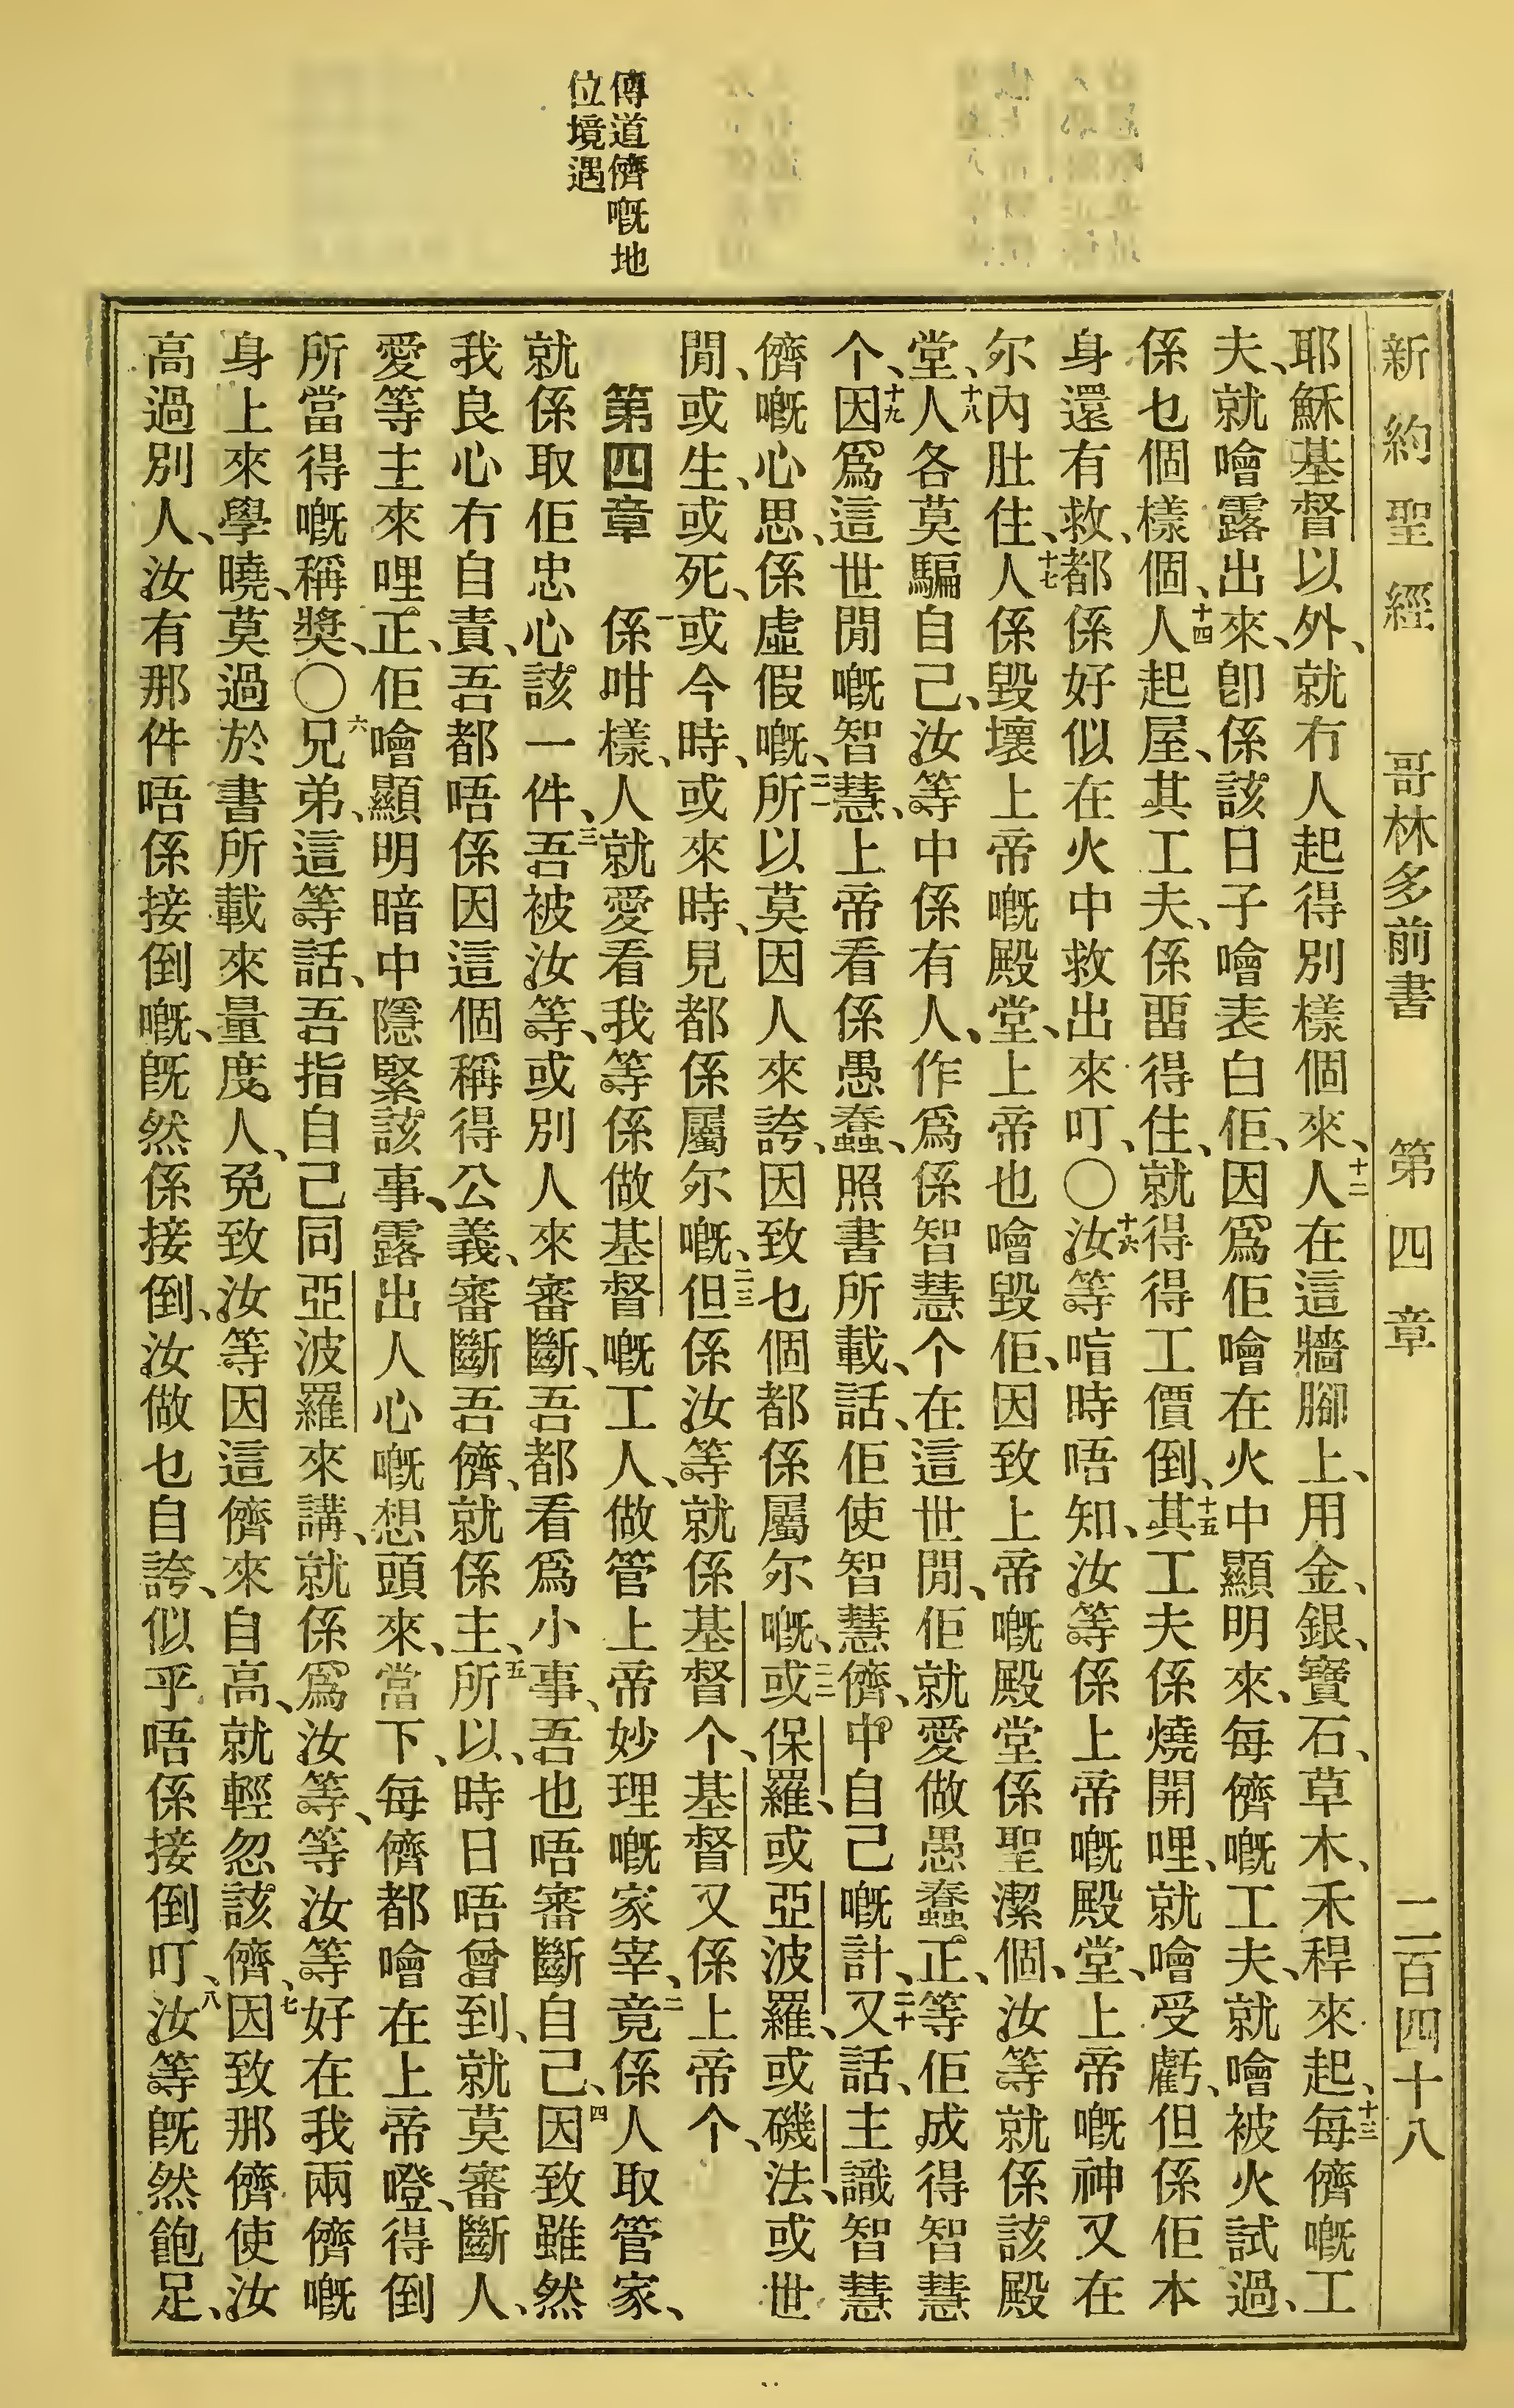 新約聖經 哥林多前書 第四章 二百四十八
耶穌基督以外、就冇人起得別樣個來、十二人在這牆腳上、用金、銀、寶石、草木、禾稈來起、十三每儕嘅工
夫、就噲露出來、卽係該日子噲表白佢、因爲佢噲在火中顯明來、每儕嘅工夫、就噲被火試過、
係乜個樣個、十四人起屋、其工夫、係畱得住、就得得工價倒、十五其工夫係燒開哩、就噲受虧、但係佢本
身還有救、都係好似在火中救出來叮、〇十六汝等喑時唔知、汝等係上帝嘅殿堂、上帝嘅神又在
尔內肚住、十七人係毀壞上帝嘅殿堂、上帝也噲毀佢、因致上帝嘅殿堂係聖潔個、汝等就係該殿
堂、十八人各莫騙自己、汝等中係有人、作爲係智慧个、在這世閒、佢就愛做愚蠢、正等佢成得智慧
个、十九因爲這世閒嘅智慧、上帝看係愚蠢、照書所載、話、佢使智慧儕、中自己嘅計、二十又話、主識智慧
儕嘅心思、係虛假嘅、二一所以莫因人來誇、因致乜個都係屬尔嘅、二二或保羅、或亞波羅、或磯法、或世
閒、或生、或死、或今時、或來時、見都係屬尔嘅、二三但係汝等就係基督个、基督又係上帝个、
傳道儕嘅地
位境遇
第四章 一係咁樣、人就愛看我等係做基督嘅工人、做管上帝妙理嘅家宰、二竟係人取管家、
就係取佢忠心該一件、三吾被汝等、或別人來審斷、吾都看爲小事、吾也唔審斷自己、四因致雖然
我良心冇自責、吾都唔係因這個稱得公義、審斷吾儕、就係主、五所以、時日唔曾到、就莫審斷人、
愛等主來哩正、佢噲顯明暗中隱緊該事、露出人心嘅想頭來、當下、每儕都噲在上帝嶝、得倒
所當得嘅稱獎、〇六兄弟、這等話、吾指自己同亞波羅來講、就係爲汝等、等汝等好在我兩儕嘅
身上來學曉、莫過於書所載來量度人、免致汝等因這儕來自高、就輕忽該儕、七因致那儕使汝
高過別人、汝有那件唔係接倒嘅、旣然係接倒、汝做乜自誇、似乎唔係接倒叮、八汝等旣然飽足、